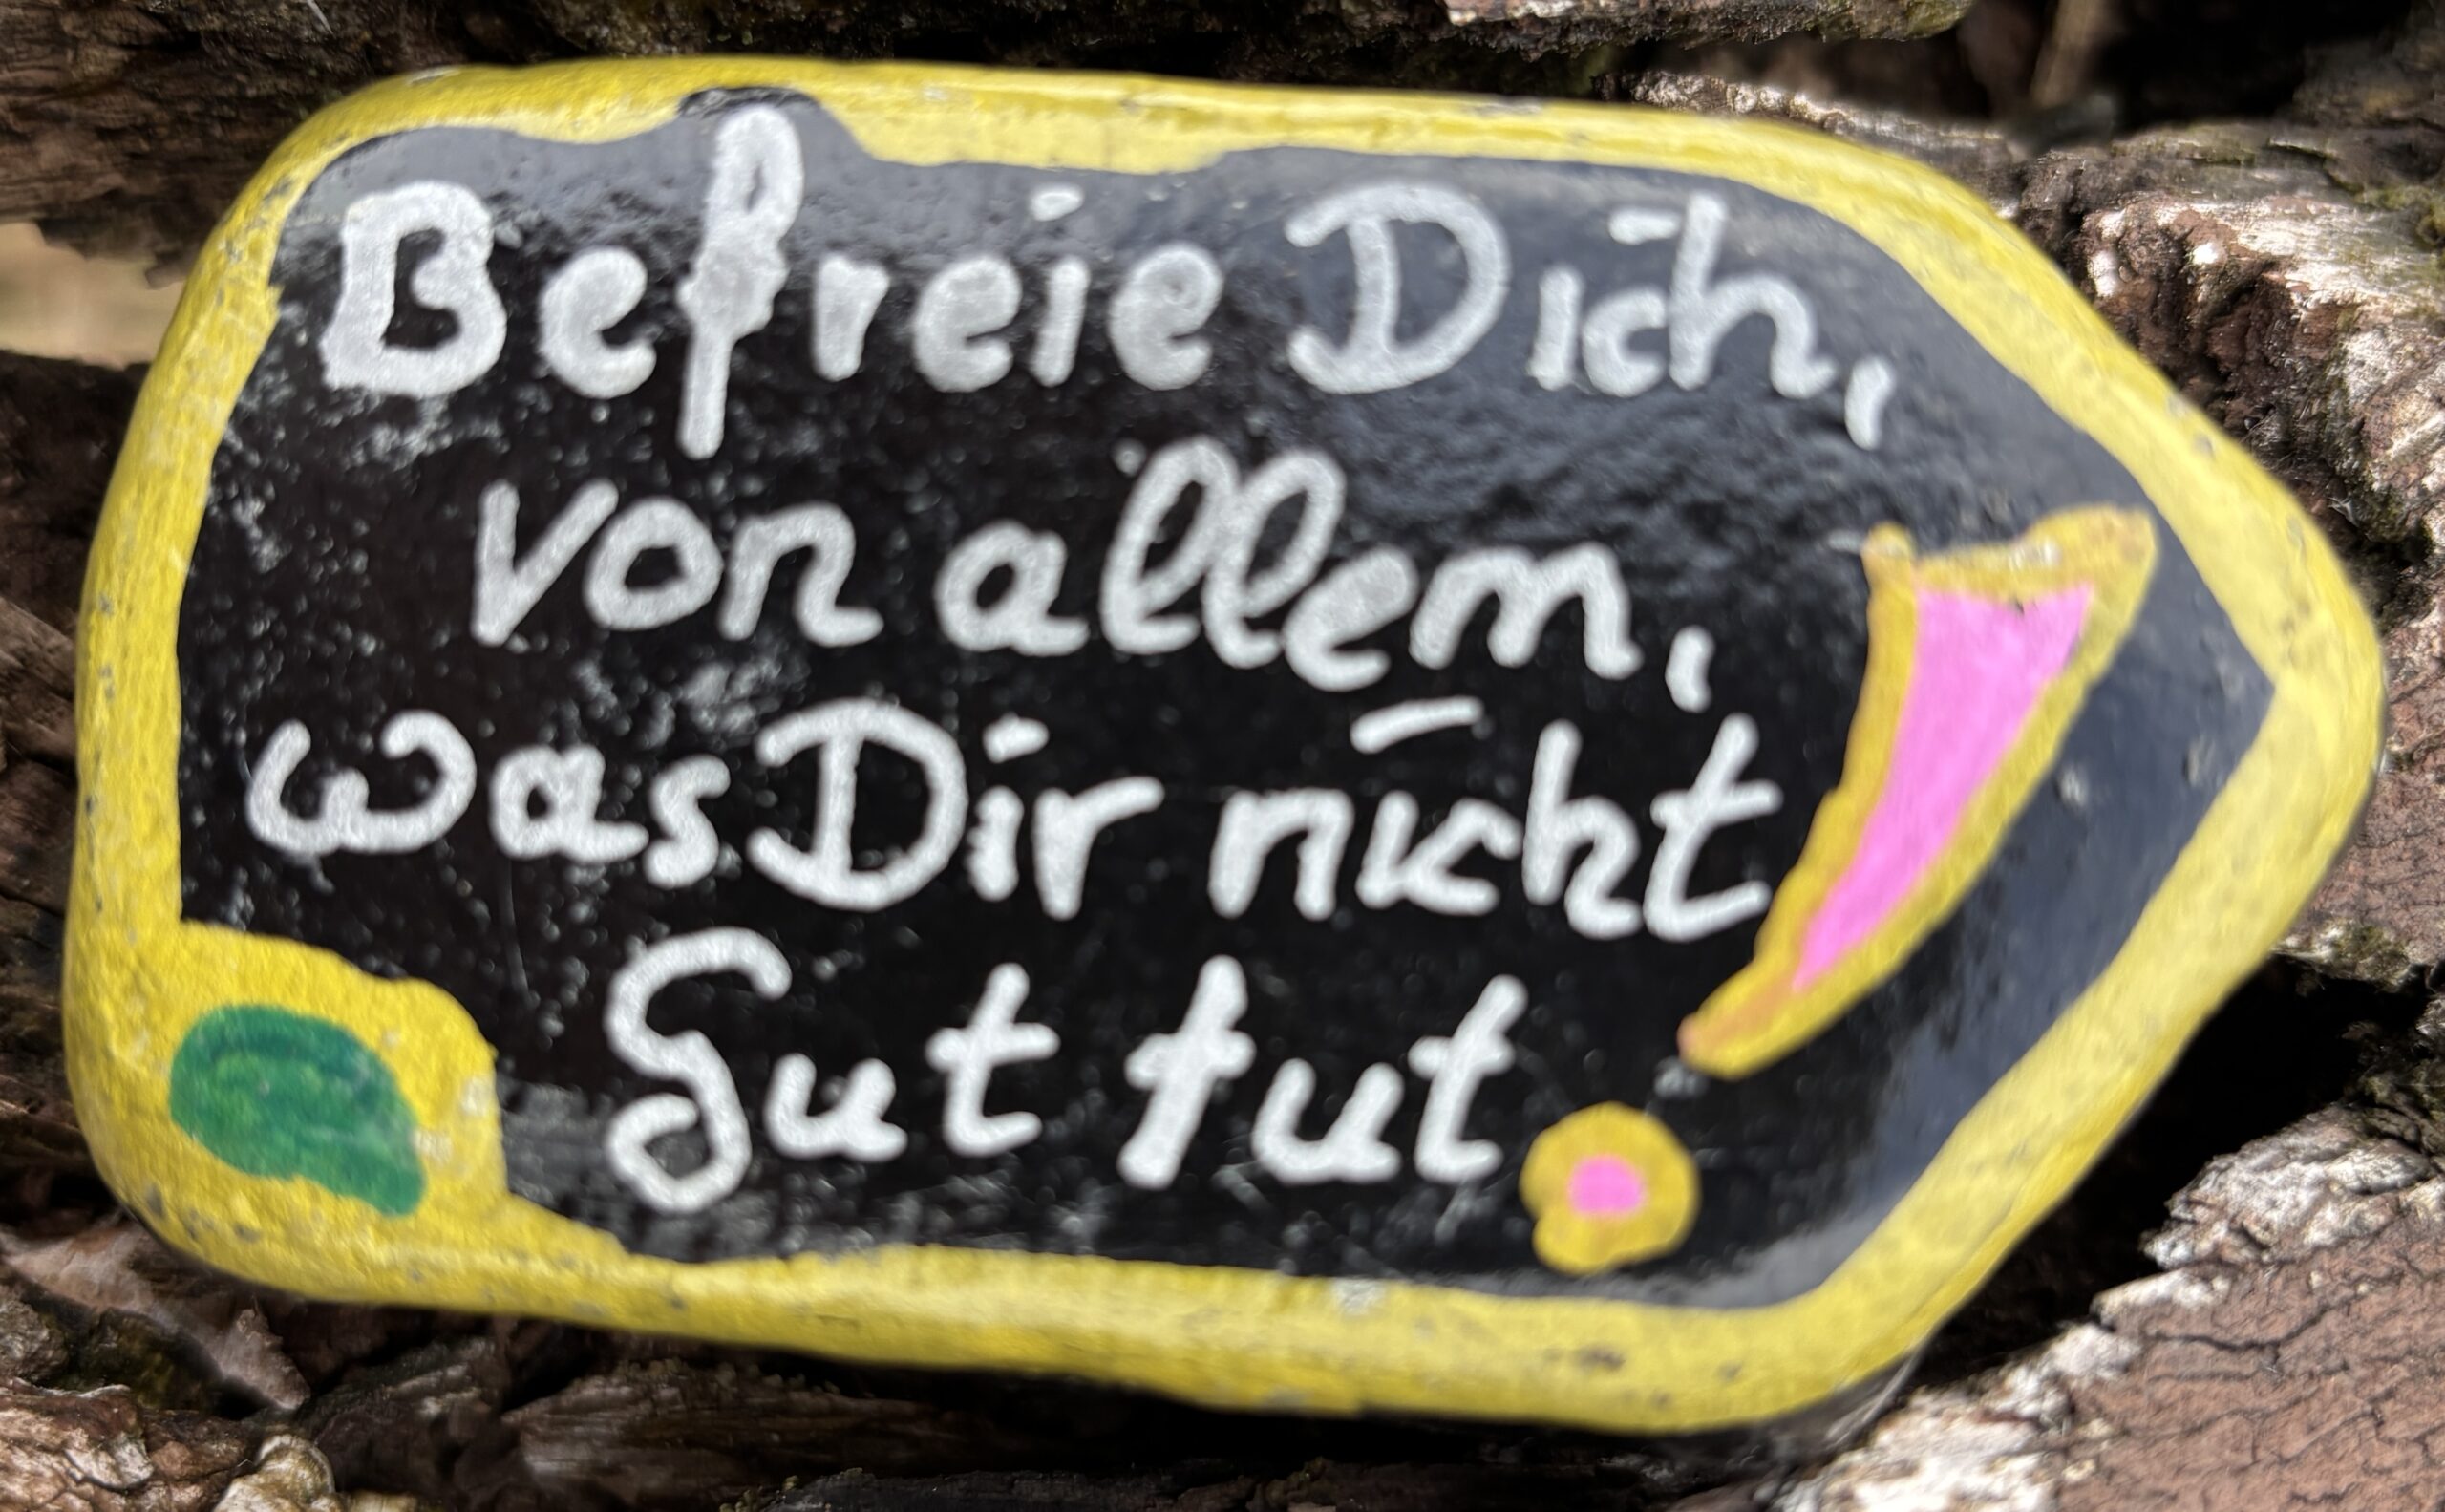 Befreie Dich,
von allem,
was Dir nicht
Gut tut!